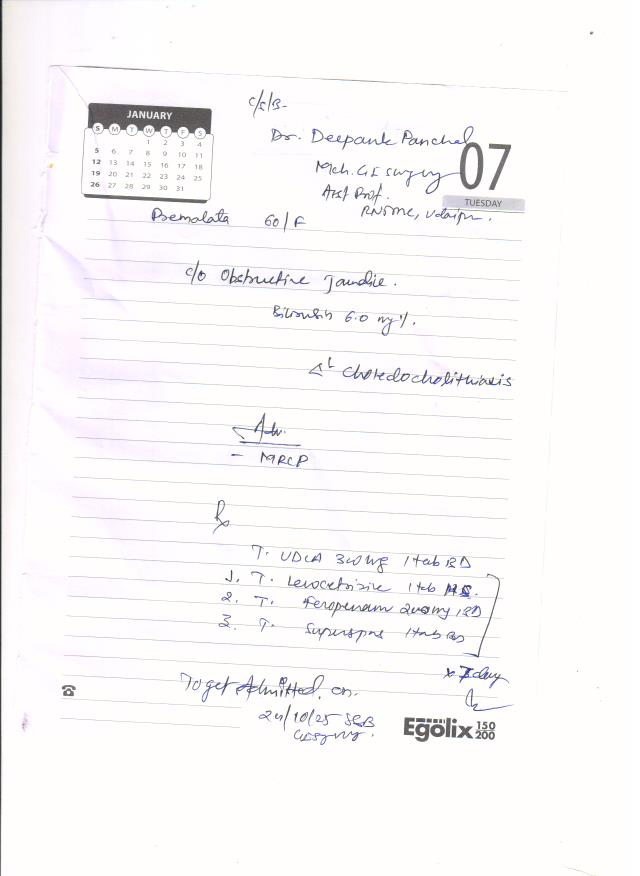 c/s/B-
JANUARY
S M T W T F S
1 2 3 4
5 6 7 8 9 10 11
12 13 14 15 16 17 18
19 20 21 22 23 24 25
26 27 28 29 30 31
Dr. Deepank Panchal
Mch. GI Surgery
Asst Prof.
RNTMC, Udaipur.
07
TUESDAY
Premalata 60/F
c/o Obstructive Jaundice.
Bilirubin 6.0 mg%.
Choledocholithiasis
Adv.
- MRCP
Rx
T. UDCA 300mg 1 tab BD
1. T. Levocetrizine 1 tab HS.
2. T. Feropenam 200mg BD
3. T. Superspas 1 tab BD
x 7 day
To get Admitted on
24/10/25
GI Surgery.
Egolix 150
200